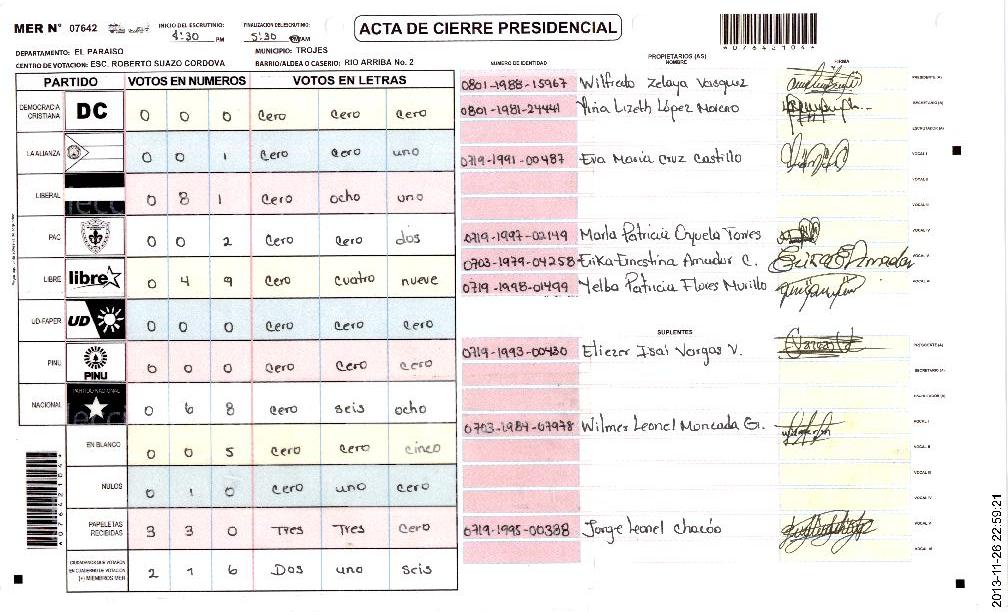 MER Nº 07642
INICIO DEL ESCRUTINIO: 4:30 PM
FINALIZACION DEL ESCRUTINIO: 5:30 PM/AM
ACTA DE CIERRE PRESIDENCIAL
DEPARTAMENTO: EL PARAISO MUNICIPIO: TROJES
CENTRO DE VOTACION: ESC. ROBERTO SUAZO CORDOVA BARRIO/ALDEA O CASERIO: RIO ARRIBA No. 2
PARTIDO VOTOS EN NUMEROS VOTOS EN LETRAS
DEMOCRACIA CRISTIANA DC 0 0 0 Cero Cero Cero
LA ALIANZA 0 0 1 Cero Cero uno
LIBERAL 0 8 1 Cero ocho uno
PAC 0 0 2 Cero Cero dos
LIBRE libre 0 4 9 Cero cuatro nueve
UD-FAPER UD 0 0 0 Cero Cero Cero
PINU PINU 0 0 0 Cero Cero Cero
NACIONAL PARTIDO NACIONAL 0 6 8 Cero seis ocho
EN BLANCO 0 0 5 Cero Cero cinco
NULOS 0 1 0 Cero uno Cero
PAPELETAS RECIBIDAS 3 3 0 Tres Tres Cero
CIUDADANOS QUE VOTARON EN CUADERNO DE VOTACION (+) MIEMBROS MER 2 1 6 Dos uno seis
PROPIETARIOS (AS)
NUMERO DE IDENTIDAD NOMBRE FIRMA
0801-1988-15967 Wilfredo Zelaya Vasquez PRESIDENTE (A)
0801-1981-24441 Lizeth López Moreno SECRETARIO (A)
ESCRUTADOR (A)
0719-1991-00487 Eva Maria Cruz Castillo VOCAL I
VOCAL II
VOCAL III
0719-1997-00149 Marla Patricia Oyuela Torres VOCAL IV
0703-1979-04258 Erika Ernestina Amador C. VOCAL V
0719-1998-01499 Yelba Patricia Flores Murillo
SUPLENTES
0719-1993-00430 Eliezer Isai Vargas V. PRESIDENTE (A)
SECRETARIO (A)
ESCRUTADOR (A)
0703-1984-07978 Wilmer Leonel Moncada G. VOCAL I
VOCAL II
VOCAL III
VOCAL IV
0719-1995-00338 Jorge Leonel Chacón VOCAL V
2013-11-26 22:59:21